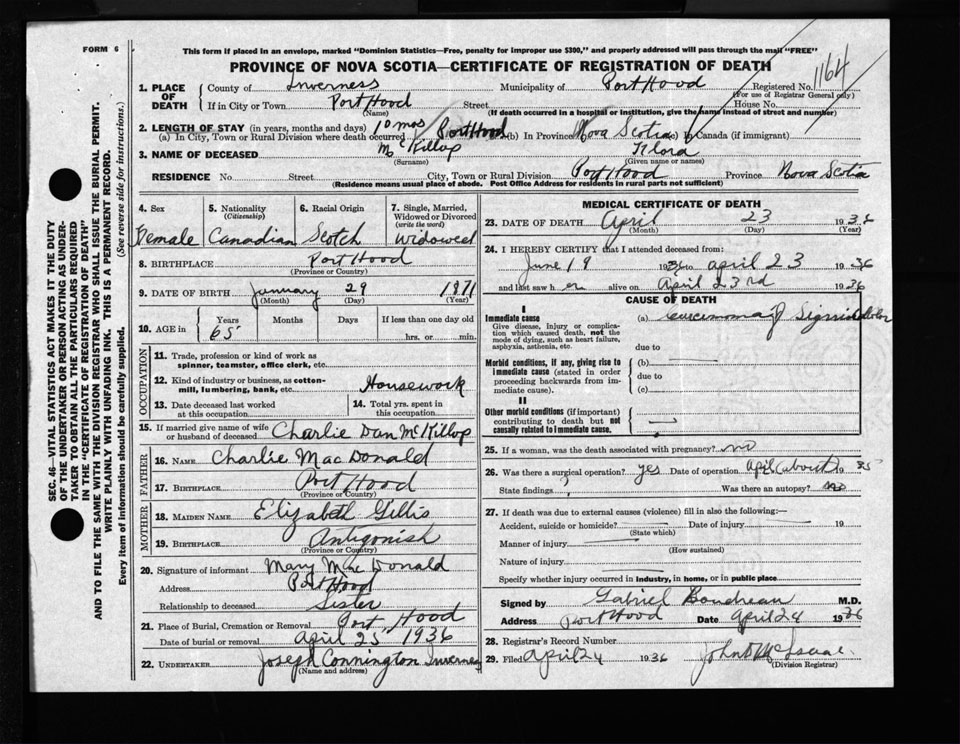 FORM 6
This form if placed in an envelope, marked "Dominion Statistics—Free, penalty for improper use $300," and properly addressed will pass through the mail "FREE"
PROVINCE OF NOVA SCOTIA—CERTIFICATE OF REGISTRATION OF DEATH
1. PLACE OF DEATH County of Inverness Municipality of Port Hood Registered No. 1164
(For use of Registrar General only)
If in City or Town Port Hood Street House No.
(Name) (If death occurred in a hospital or institution, give the name instead of street and number)
2. LENGTH OF STAY (in years, months and days) 10 mos
(a) In City, Town or Rural Division where death occurred Port Hood (b) In Province Nova Scotia (c) In Canada (if immigrant)
3. NAME OF DECEASED McKillop Flora
(Surname) (Given name or names)
RESIDENCE No. Street City, Town or Rural Division Port Hood Province Nova Scotia
(Residence means usual place of abode. Post Office Address for residents in rural parts not sufficient)
4. Sex 5. Nationality (Citizenship) 6. Racial Origin 7. Single, Married, Widowed or Divorced (write the word)
Female Canadian Scotch Widowed
8. BIRTHPLACE Port Hood
(Province or Country)
9. DATE OF BIRTH January 29 1871
(Month) (Day) (Year)
10. AGE in Years Months Days If less than one day old
65 hrs. or min.
OCCUPATION
11. Trade, profession or kind of work as spinner, teamster, office clerk, etc.
12. Kind of industry or business, as cotton-mill, lumbering, bank, etc. Housework
13. Date deceased last worked at this occupation 14. Total yrs. spent in this occupation
15. If married give name of wife or husband of deceased Charlie Dan McKillop
FATHER
16. NAME Charlie MacDonald
17. BIRTHPLACE Port Hood
(Province or Country)
MOTHER
18. MAIDEN NAME Elizabeth Gillis
19. BIRTHPLACE Antigonish
(Province or Country)
20. Signature of informant Mary MacDonald
Address Port Hood
Relationship to deceased Sister
21. Place of Burial, Cremation or Removal Port Hood
Date of burial or removal April 25 1936
22. UNDERTAKER Joseph Connington Inverness
(Name and address)
MEDICAL CERTIFICATE OF DEATH
23. DATE OF DEATH April 23 1936
(Month) (Day) (Year)
24. I HEREBY CERTIFY that I attended deceased from:
June 19 1936 to April 23 1936
and last saw her alive on April 23rd 1936
CAUSE OF DEATH
I
Immediate cause (a) carcinoma of
Give disease, injury or complication which caused death, not the mode of dying, such as heart failure, asphyxia, asthenia, etc.
due to
Morbid conditions, if any, giving rise to immediate cause (stated in order proceeding backwards from immediate cause).
(b)
due to
(c)
II
Other morbid conditions (if important) contributing to death but not causally related to immediate cause.
25. If a woman, was the death associated with pregnancy? no
26. Was there a surgical operation? yes Date of operation April (about) 1935
State findings ? Was there an autopsy? no
27. If death was due to external causes (violence) fill in also the following:—
Accident, suicide or homicide? Date of injury 19
(State which)
Manner of injury
(How sustained)
Nature of injury
Specify whether injury occurred in industry, in home, or in public place
Signed by Gabriel Boudreau M.D.
Address Port Hood Date April 24 1936
28. Registrar's Record Number
29. Filed April 24 1936 John D McIsaac
(Division Registrar)
SEC. 46—VITAL STATISTICS ACT MAKES IT THE DUTY
OF THE UNDERTAKER OR PERSON ACTING AS UNDER-
TAKER TO OBTAIN ALL THE PARTICULARS REQUIRED
IN THE "CERTIFICATE OF REGISTRATION OF DEATH"
AND TO FILE THE SAME WITH THE DIVISION REGISTRAR WHO SHALL ISSUE THE BURIAL PERMIT.
WRITE PLAINLY WITH UNFADING INK. THIS IS A PERMANENT RECORD.
Every item of information should be carefully supplied. (See reverse side for instructions.)